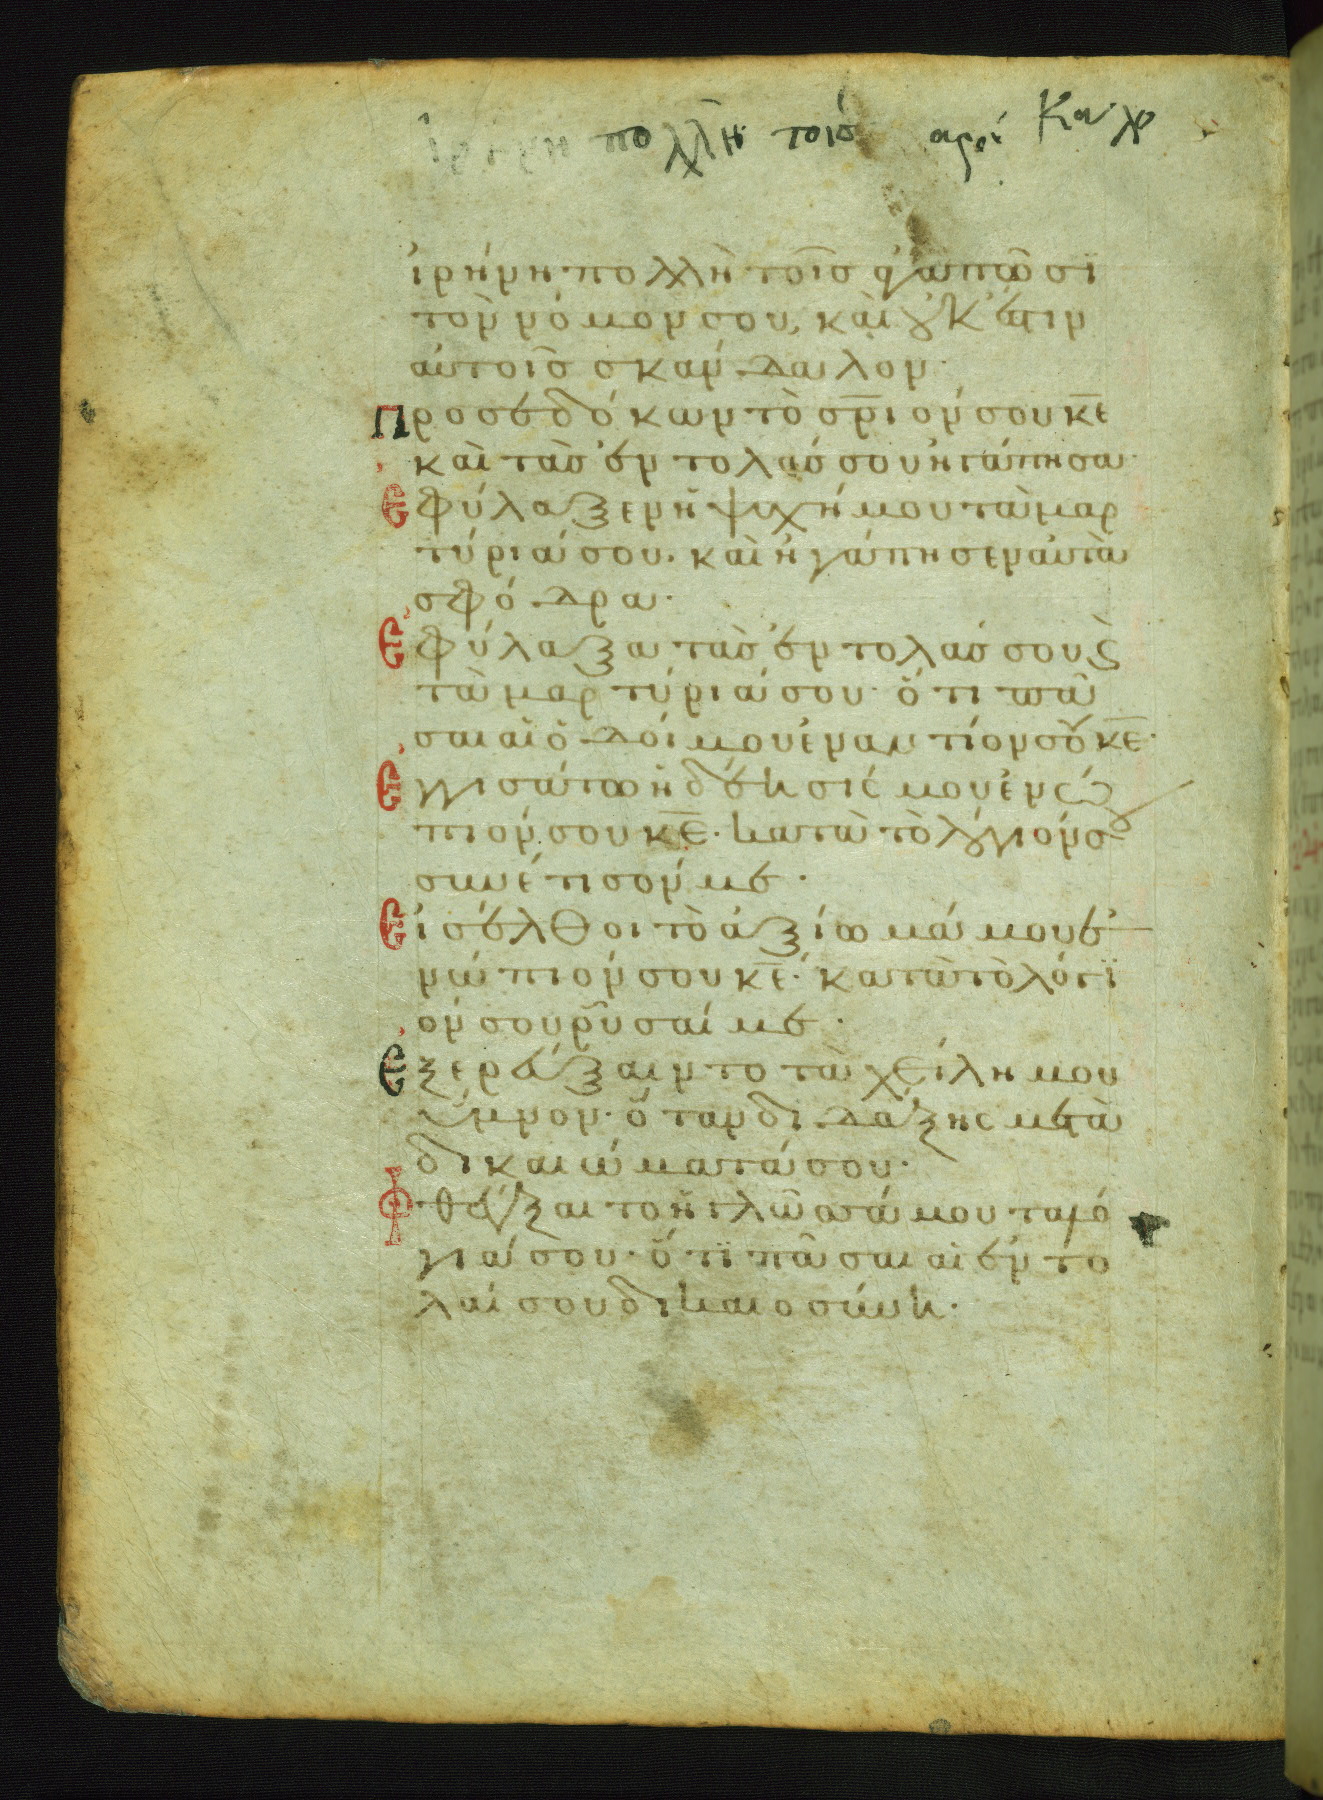 ἰρήνη πολλὴ τοῖς
ἰρήνη πολλὴ τοῖσ ἀγαπῶσϊ
τὸν νόμον σου, καὶ οὐκ ἔστιν
αὐτοῖσ σκάνδαλον·
Προσεδόκων τὸ σρ̅ιόν σου κε̅
καὶ τὰσ ἐντολάσ σου ἠγάπησα·
Ἐφύλαξεν ἡ ψυχή μου τὰ μαρ
τύριά σου. καὶ ἠγάπησεν αὐτὰ
σφόδρα·
Ἐφύλαξα τὰσ ἐντολάσ σου ϛ
τὰ μαρτύριά σου· ὅτι πᾶ
σαι αἱ ὁδοί μου ἐναντίον σοῦ κε̅·
Ἐγγισάτω ἡ δέησίς μου ἐνώ
πιόν σου κε̅· κατὰ τὸ λόγιόν σου
συνέτισόν με·
Εἰσέλθοι τὸ ἀξίωμά μου ἐ
νώπιόν σου κε̅· κατὰ τὸ λόγϊ
όν σου ῥῦσαί με·
Ἐξερεύξαιντο τὰ χείλη μου
ὕμνον· ὅταν διδάξης με τὰ
δικαιώματά σου·
Φθέγξαιτο ἡ γλῶσσά μου τα λό
γιά σου· ὅτϊ πᾶσαι αἱ ἐντο
λαί σου δικαιοσύνη·